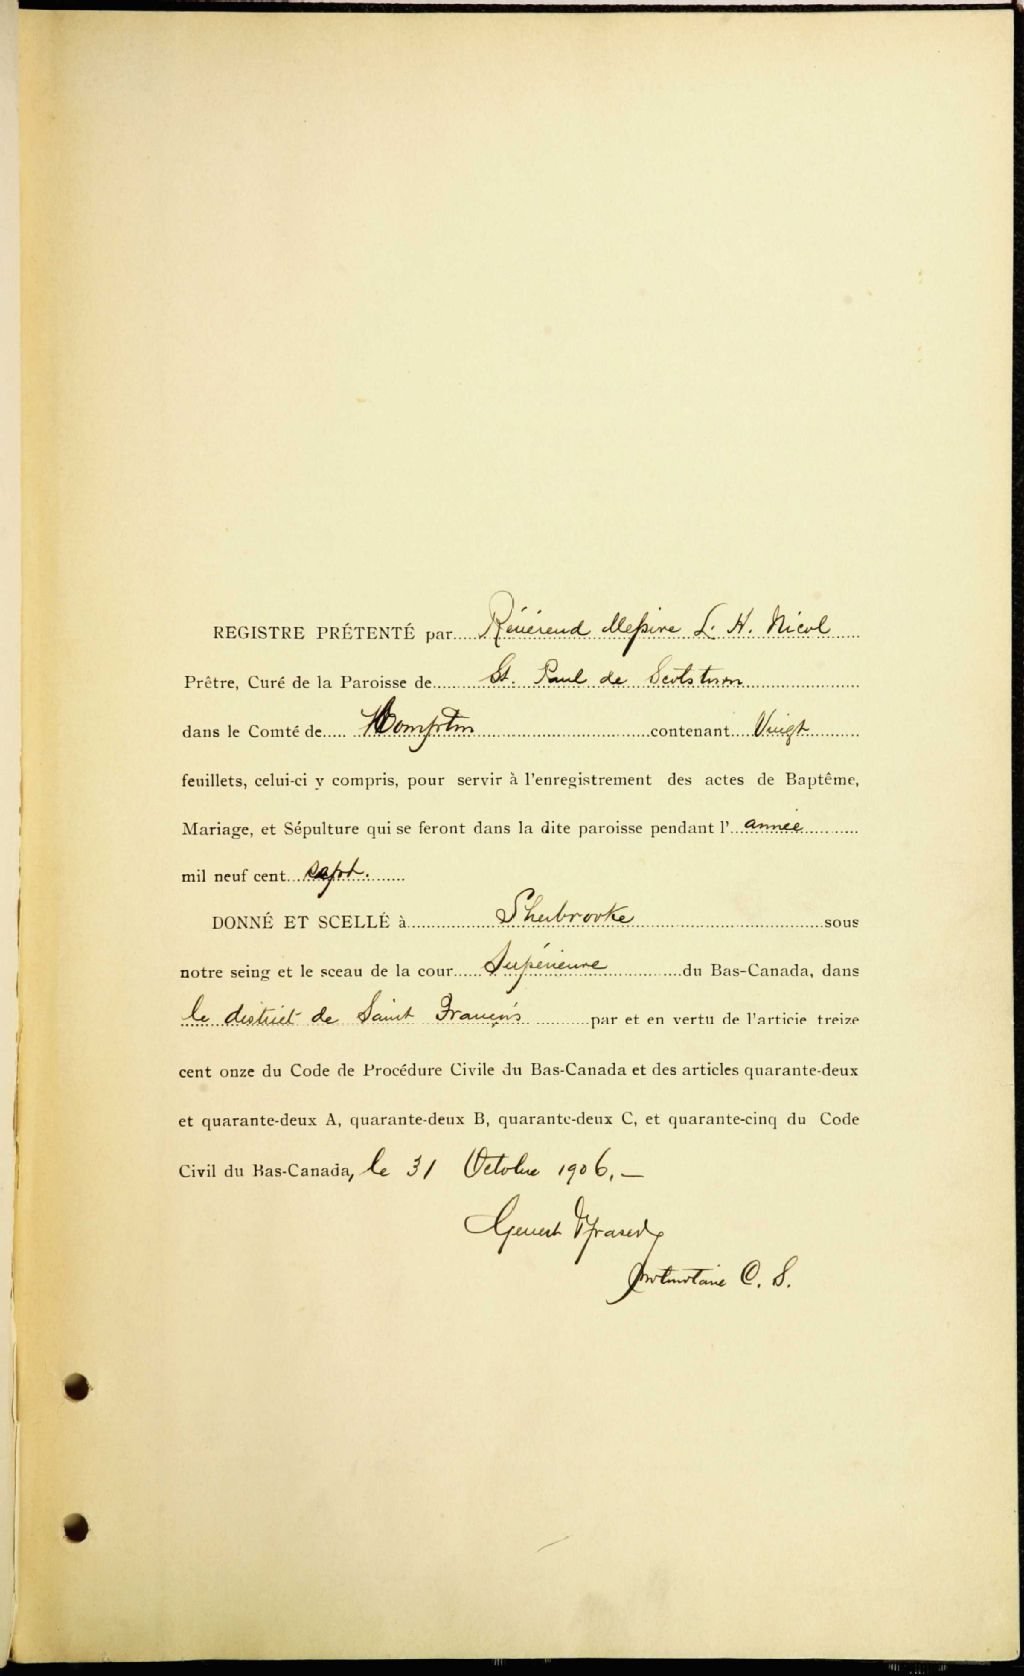 REGISTRE PRÉTENTÉ par Révérend Messire L. H. Nicol
Prêtre, Curé de la Paroisse de St. Paul de Scotstown
dans le Comté de Compton contenant Vingt
feuillets, celui-ci y compris, pour servir à l'enregistrement des actes de Baptême,
Mariage, et Sépulture qui se feront dans la dite paroisse pendant l' année
mil neuf cent sept.
DONNÉ ET SCELLÉ à Sherbrooke sous
notre seing et le sceau de la cour Supérieure du Bas-Canada, dans
le district de Saint François par et en vertu de l'articie treize
cent onze du Code de Procédure Civile du Bas-Canada et des articles quarante-deux
et quarante-deux A, quarante-deux B, quarante-deux C, et quarante-cinq du Code
Civil du Bas-Canada, le 31 Octobre 1906. —
Genest & Fraser
Protonotaire C. S.